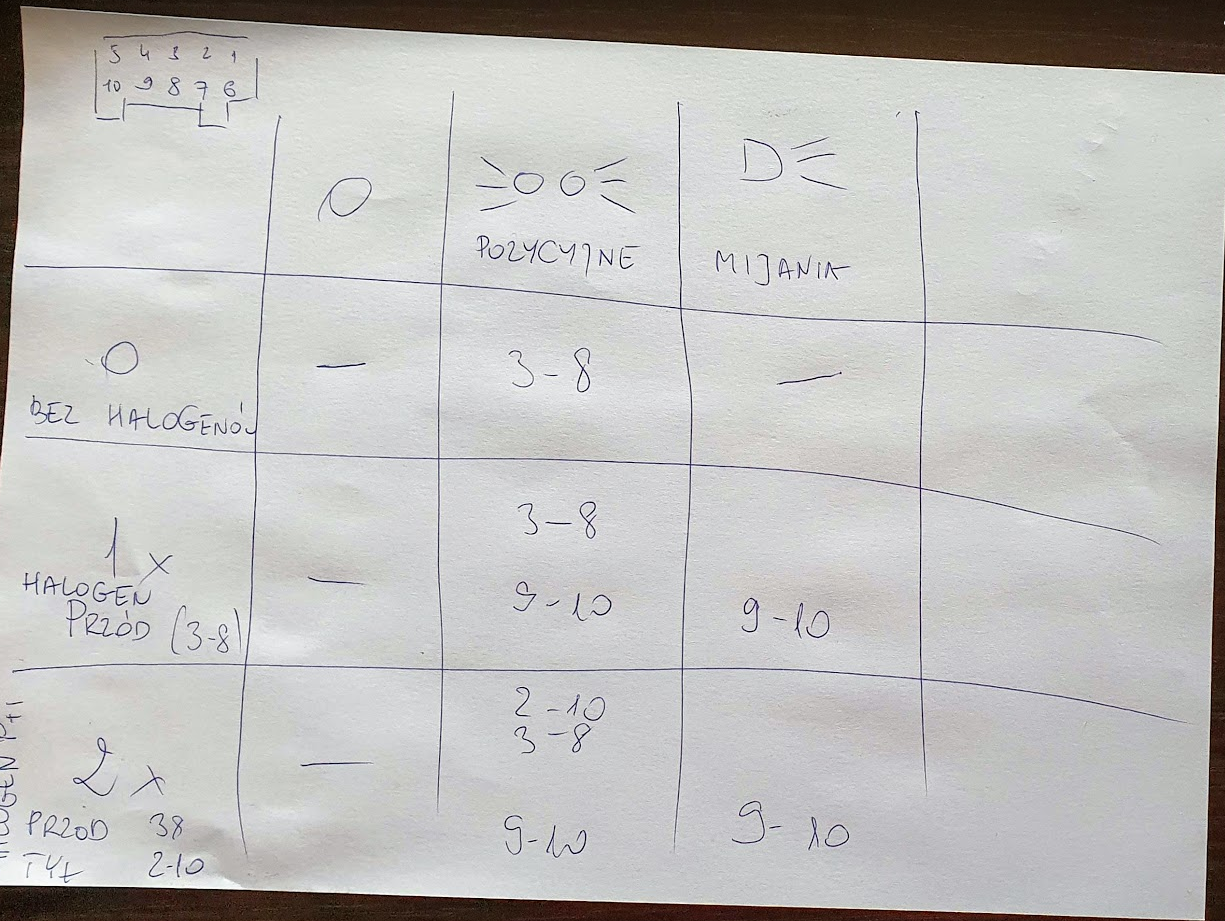 5 4 3 2 1
10 9 8 7 6
0
POZYCYJNE
MIJANIA
0
BEZ HALOGENÓW
—
3-8
—
1 x
HALOGEN
PRZÓD (3-8)
—
3-8
9-10
9-10
2 x
PRZOD 38
TYŁ 2-10
—
2-10
3-8
9-10
9-10